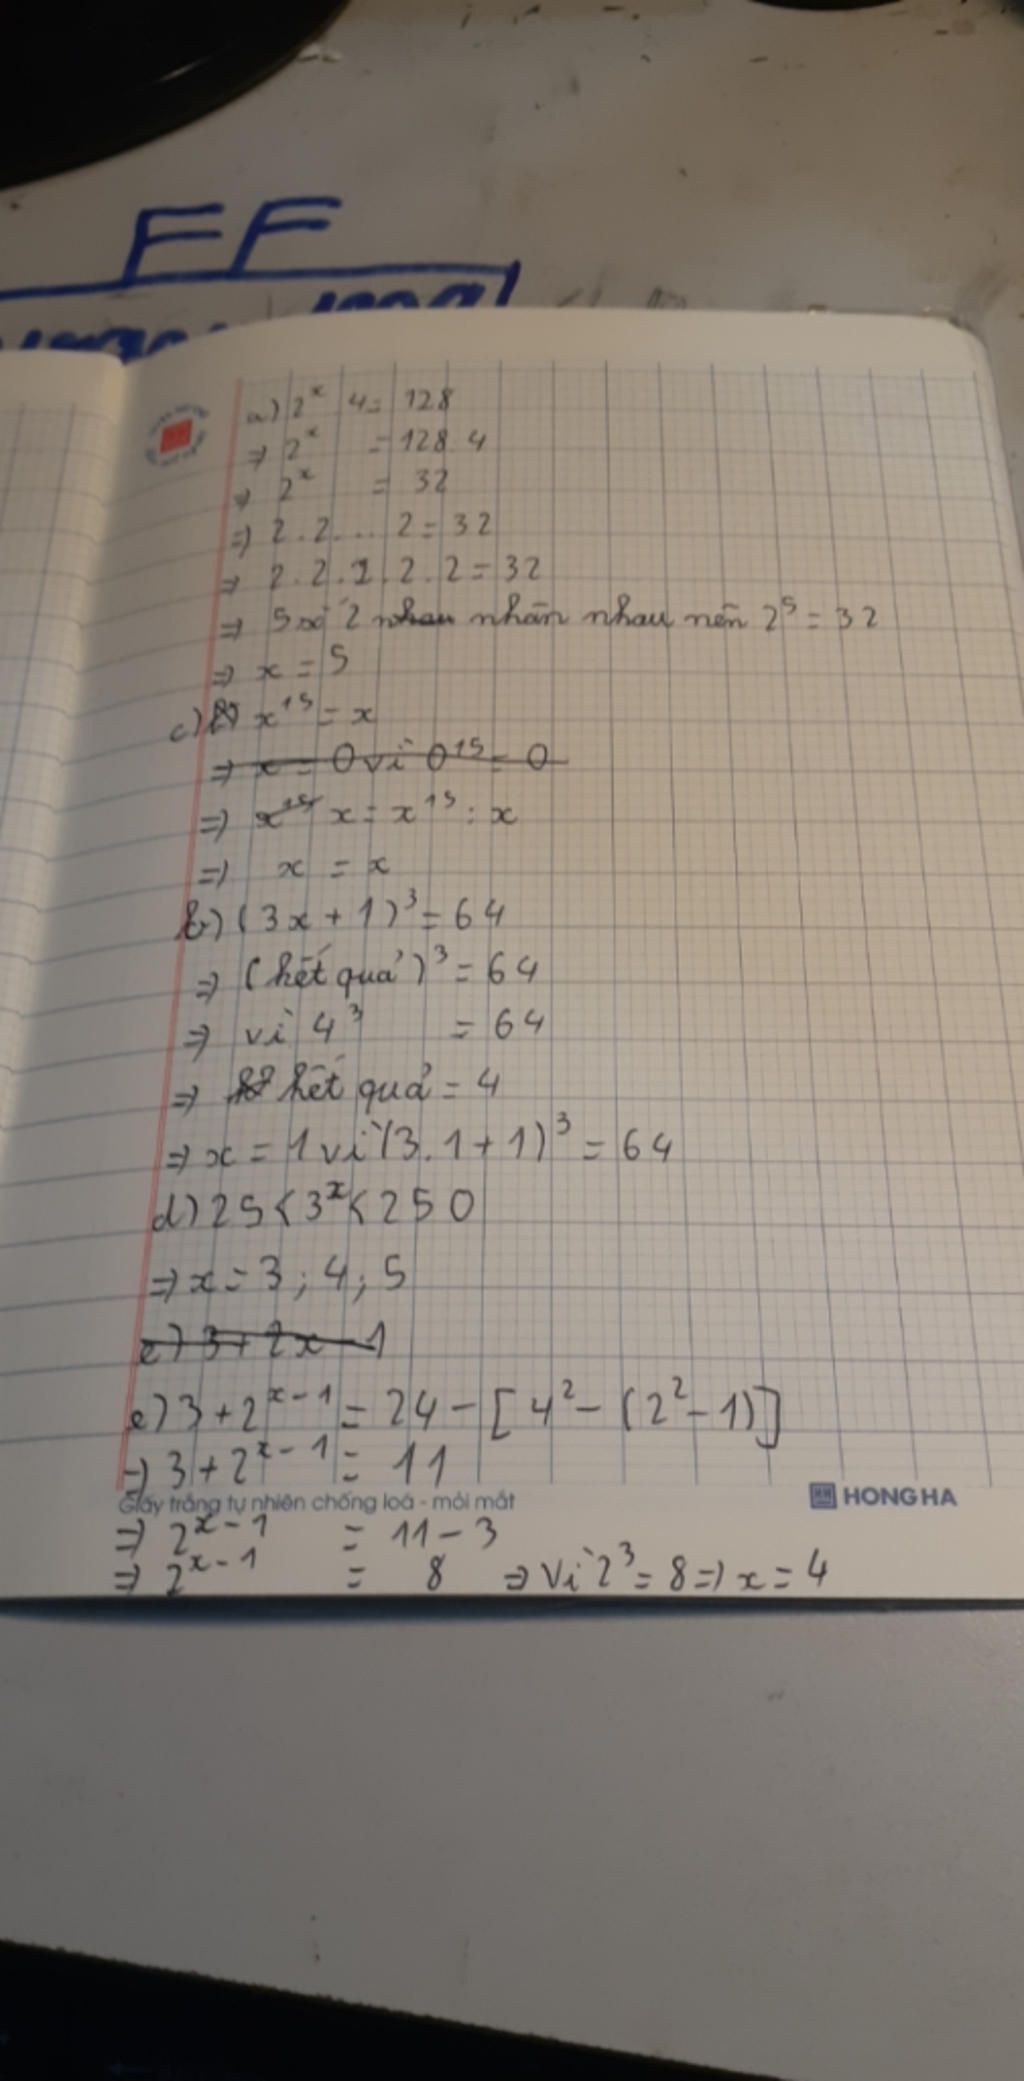 FF
a) 2ˣ 4 = 128
⇒ 2ˣ = 128 4
⇒ 2ˣ = 32
⇒ 2 . 2 ... 2 = 32
⇒ 2 . 2 . 2 . 2 . 2 = 32
⇒ 5 số 2 nhau nhân nhau nên 2⁵ = 32
⇒ x = 5
c) x¹⁵ = x
⇒ x = 0 vì 0¹⁵ = 0
⇒ x¹⁵ x = x¹⁵ : x
⇒ x = x
b) (3x + 1)³ = 64
⇒ (kết quả)³ = 64
⇒ vì 4³ = 64
⇒ kết quả = 4
⇒ x = 1 vì (3.1 + 1)³ = 64
d) 25 < 3ˣ < 250
⇒ x = 3 ; 4 ; 5
e) 3 + 2x - 1
e) 3 + 2ˣ⁻¹ = 24 - [4² - (2² - 1)]
⇒ 3 + 2ˣ⁻¹ = 11
Giấy trắng tự nhiên chống loá - mỏi mắt HONG HA
⇒ 2ˣ⁻¹ = 11 - 3
⇒ 2ˣ⁻¹ = 8 ⇒ Vì 2³ = 8 ⇒ x = 4